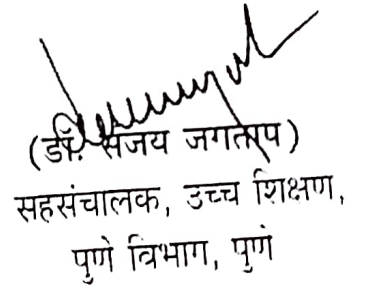 (डॉ. संजय जगताप)
सहसंचालक, उच्च शिक्षण,
पुणे विभाग, पुणे